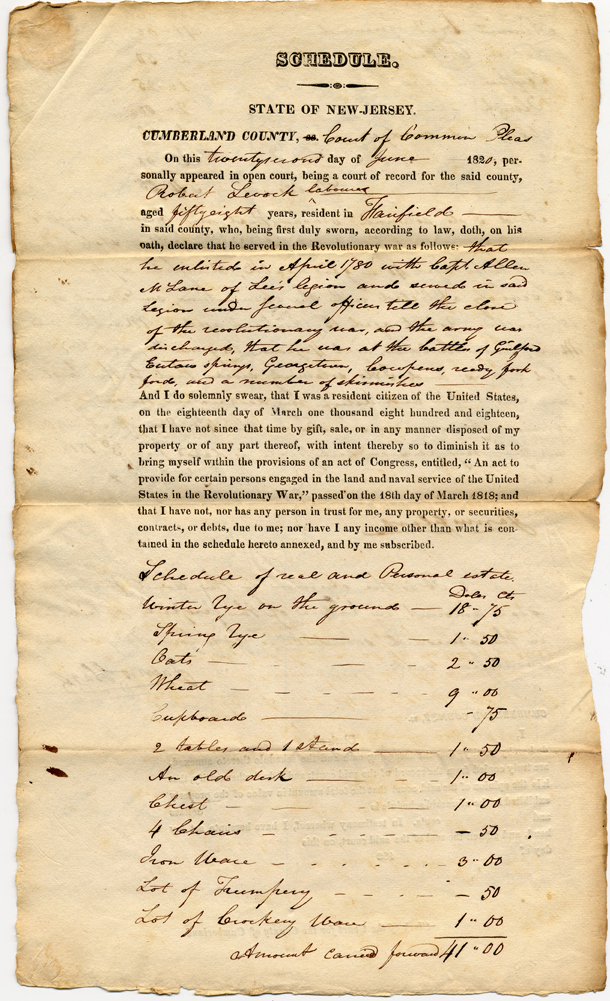 SCHEDULE.
STATE OF NEW-JERSEY.
CUMBERLAND COUNTY, ss. Court of Common Pleas
On this twentysecond day of June 1820, per-
sonally appeared in open court, being a court of record for the said county,
Robert Levock labourer
aged fiftyeight years, resident in Fairfield
in said county, who, being first duly sworn, according to law, doth, on his
oath, declare that he served in the Revolutionary war as follows: that
he enlisted in April 1780 with Capt. Allen
McLane of Lee's legion and served in said
Legion under several officers till the close
of the revolutionary war, and the army was
discharged, that he was at the battles of Guilford
Eutaw springs, Georgetown, Cowpens, reedy fork
ford, and a number of skirmishes
And I do solemnly swear, that I was a resident citizen of the United States,
on the eighteenth day of March one thousand eight hundred and eighteen,
that I have not since that time by gift, sale, or in any manner disposed of my
property or of any part thereof, with intent thereby so to diminish it as to
bring myself within the provisions of an act of Congress, entitled, "An act to
provide for certain persons engaged in the land and naval service of the United
States in the Revolutionary War," passed on the 18th day of March 1818; and
that I have not, nor has any person in trust for me, any property, or securities,
contracts, or debts, due to me; nor have I any income other than what is con-
tained in the schedule hereto annexed, and by me subscribed.
Schedule of real and Personal estate.
Dolls Cts
Winter Rye on the ground — 18 " 75
Spring Rye — 1 " 50
Oats — 2 " 50
Wheat — 9 " 00
Cupboard — - 75
2 tables and 1 Stand — 1 " 50
An old desk — 1 " 00
Chest — 1 " 00
4 Chairs — - 50
Iron Ware — 3 " 00
Lot of Trumpery — - 50
Lot of Crockery Ware — 1 " 00
Amount carried forward 41 " 00